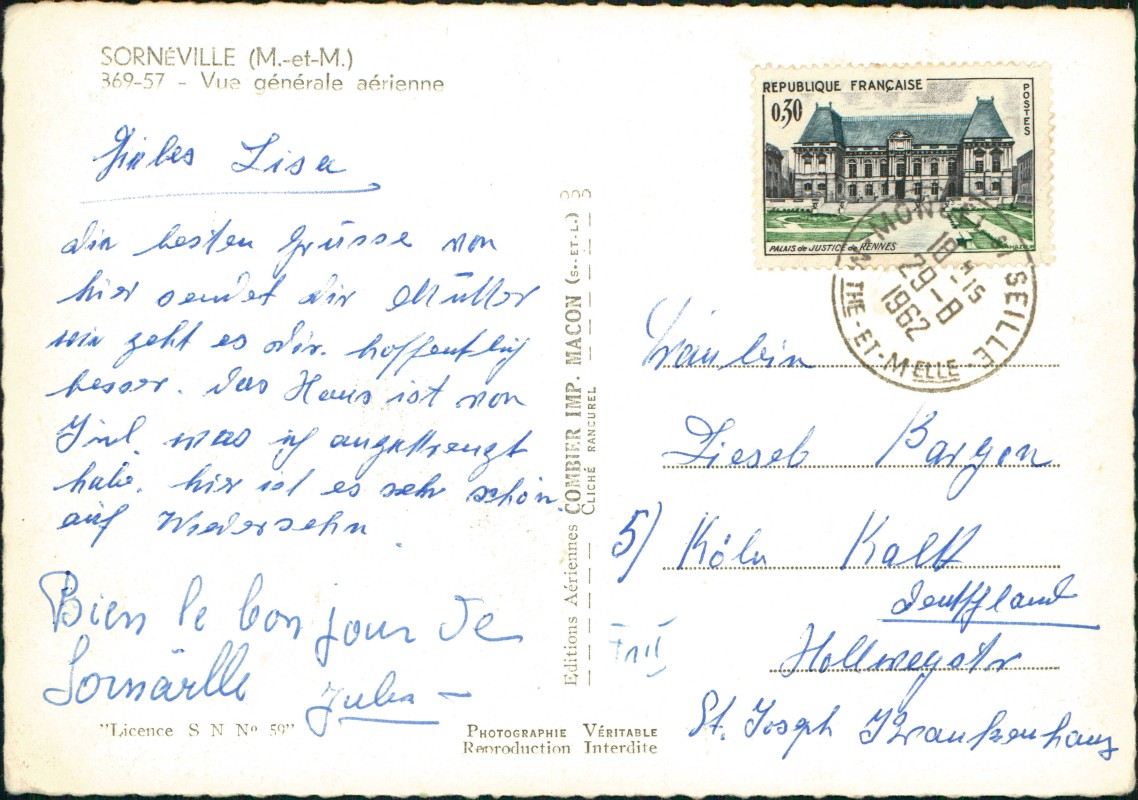 SORNÉVILLE (M.-et-M.)
369-57 - Vue générale aérienne
Lisa
die besten Grüsse von
hier sendet dir Mutter
wie geht es dir. hoffentlich
besser. das Haus ist von
was ich angestrengt
habe. hier ist es sehr schön.
auf Wiedersehn.
Bien le bonjour de
Sornäville
"Licence S N Nº 59"
PHOTOGRAPHIE VÉRITABLE
Reproduction Interdite
Editions Aériennes COMBIER IMP. MACON (S.-ET-L.)
CLICHÉ RANCUREL
REPUBLIQUE FRANÇAISE
POSTES
0,30
PALAIS de JUSTICE de RENNES
18 H 15
29-8
1962
SEILLE
THE-ET-MELLE
Fräulein
Bargen
5) Köln Kalk
Deutschland
Hollwegstr
St. Joseph Krankenhaus